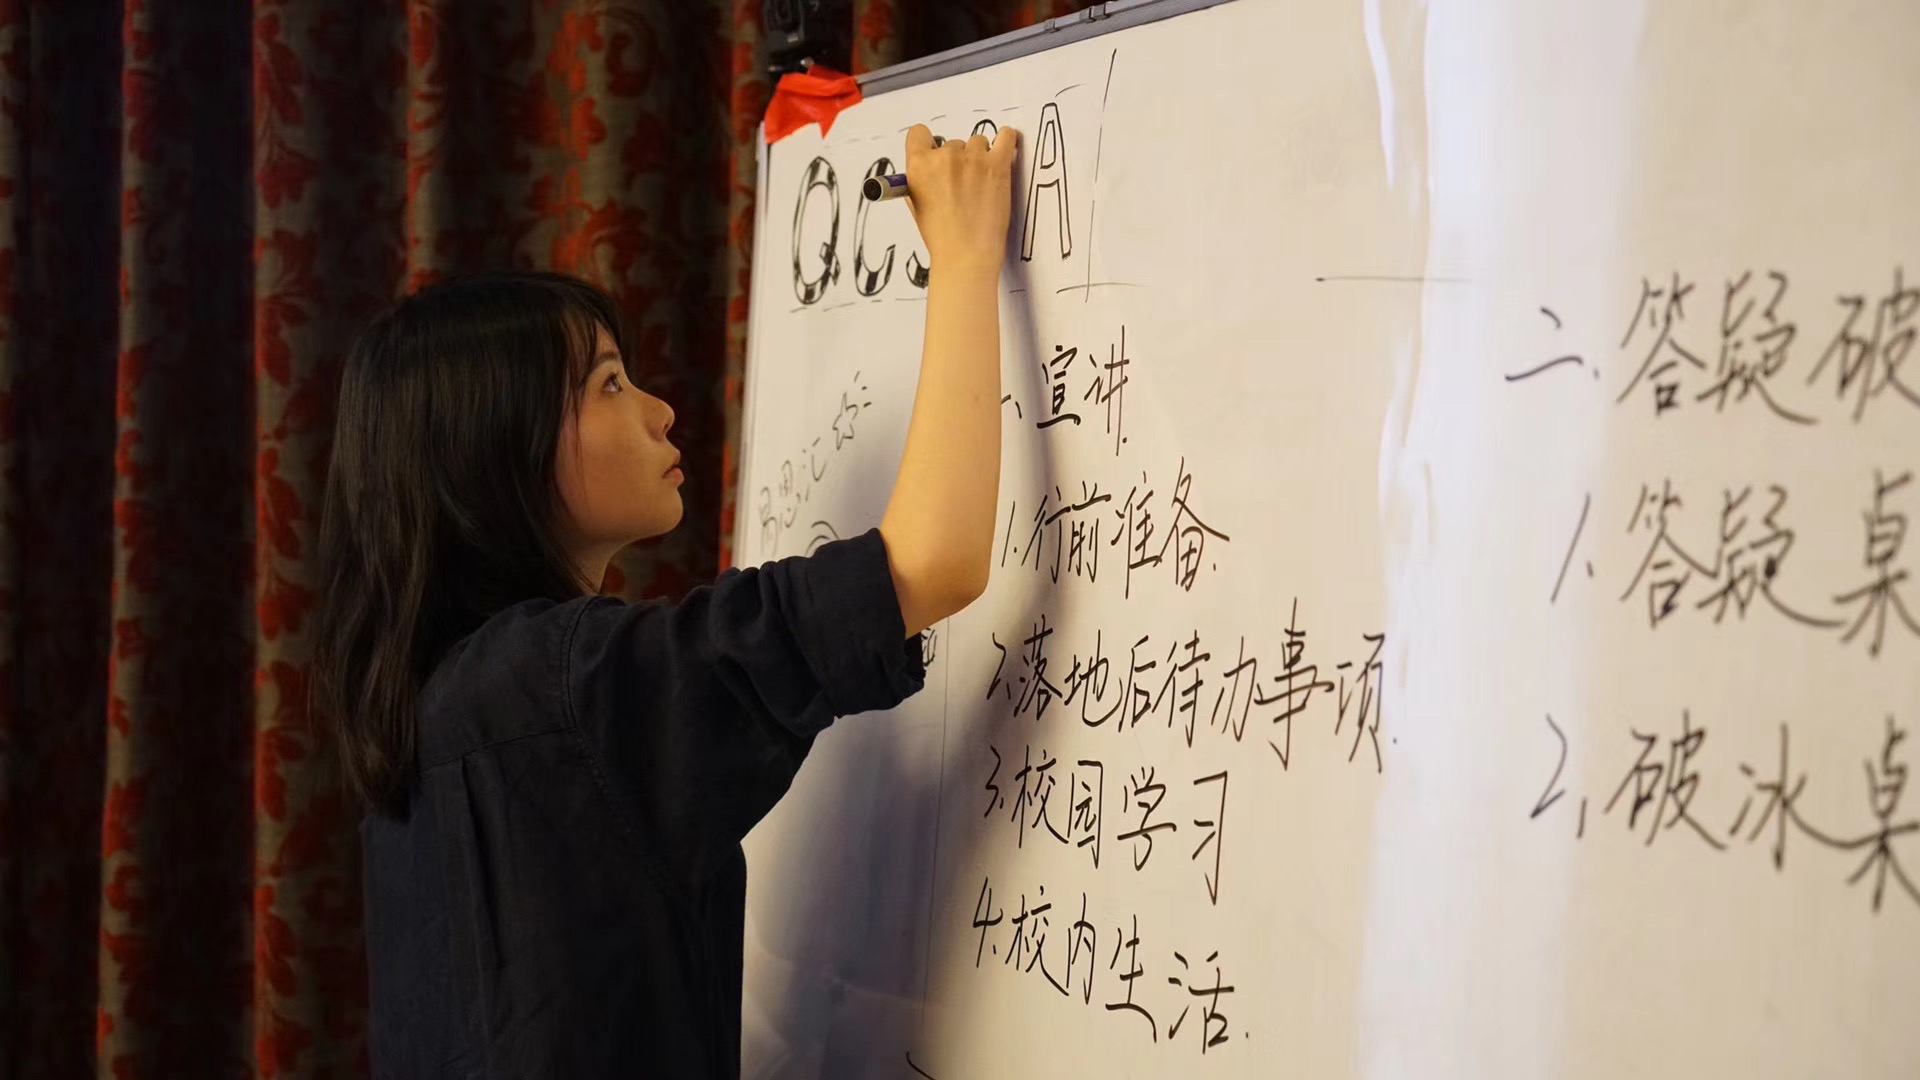 QCSSA
一、宣讲
1.行前准备
2.落地后待办事项
3.校园学习
4.校内生活
二、答疑破
1.答疑桌
2.破冰桌